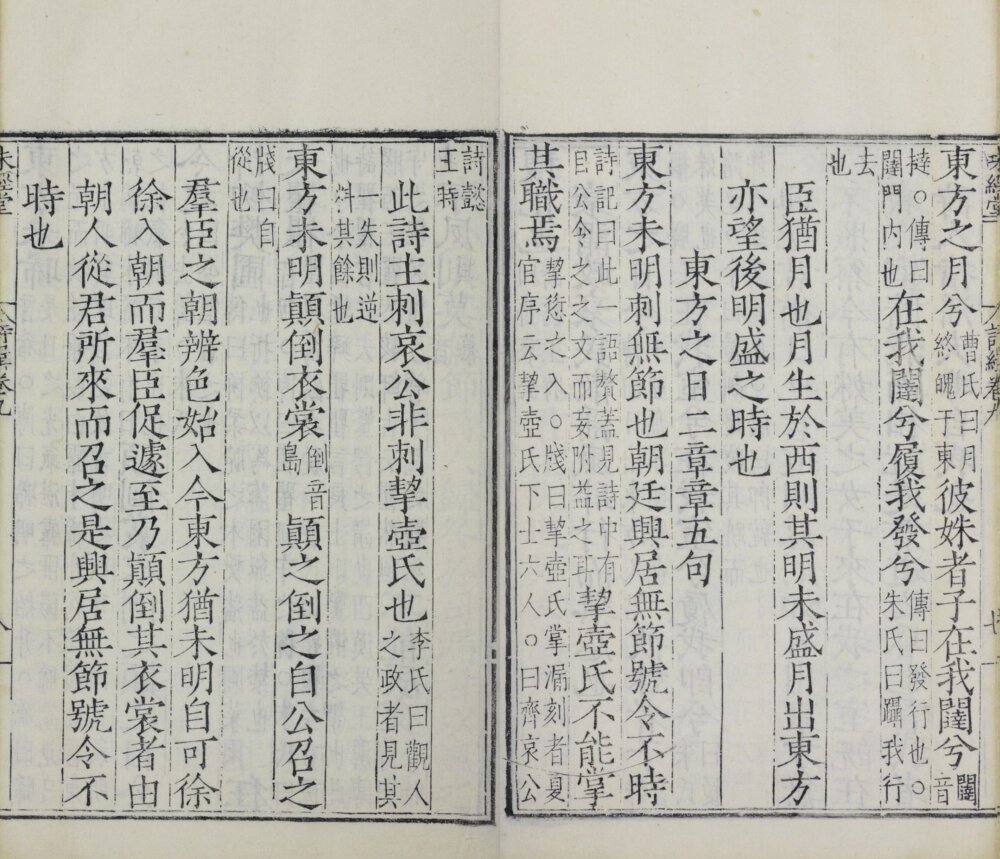 東方之月兮曹氏曰月終魄于東彼姝者子在我闥兮闥音
撻○傳曰闥門內也在我闥兮履我發兮傳曰發行也○朱氏曰躡我行
去也
臣猶月也月生於西則其明未盛月出東方
亦望後明盛之時也
東方之日二章章五句
東方未明刺無節也朝廷興居無節號令不時
詩記曰此語贅蓋見詩中有自公令之之文而妄附益之耳挈壺氏不能掌
其職焉挈之入○箋曰挈壺氏掌漏刻者夏官序云挈壺氏下士六人○曰齊哀公
詩懿王時
此詩主刺哀公非刺挈壺氏也李氏曰觀人之政者見其
一失則逆料其餘也
東方未明顛倒衣裳倒音島顛之倒之自公召之
箋曰自從也
羣臣之朝辨色始入今東方猶未明自可徐
徐入朝而羣臣促遽至乃顛倒其衣裳者由
朝人從君所來而召之是興居無節號令不
時也